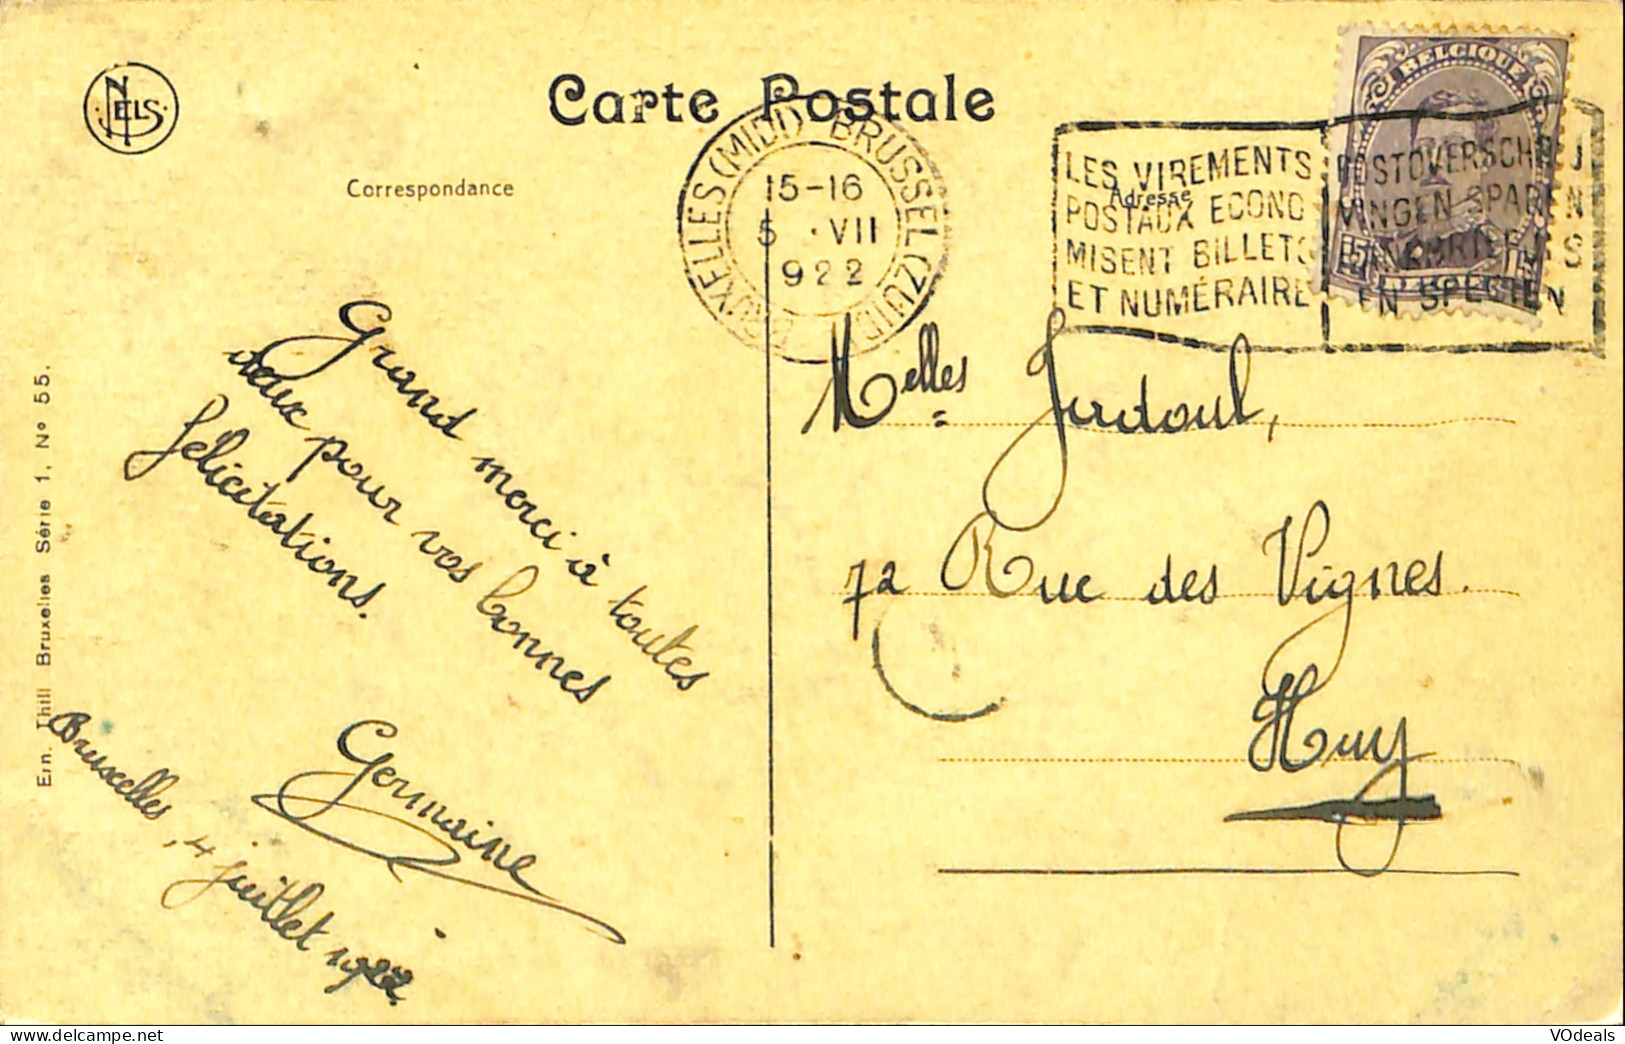 NELS
Carte Postale
Correspondance
Adresse
BRUXELLES (MIDI) BRUSSEL (ZUID)
15-16
5 · VII
922
LES VIREMENTS
POSTAUX ECONO
MISENT BILLETS
ET NUMÉRAIRE
POSTOVERSCHRIJ
VINGEN SPAREN
EN SPECIEN
BELGIQUE
15
Grand merci à toutes
deux pour vos bonnes
félicitations.
Germaine
Bruxelles, 4 juillet 1922.
Melles Judoul,
72 Rue des Vignes.
Huy
Ern. Thill Bruxelles Série 1. No 55.
VOdeals